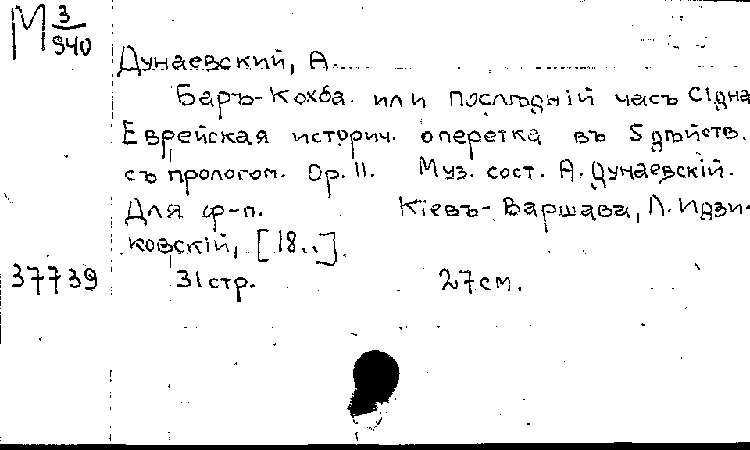 М 3/940
Дунаевский, А.
Баръ-Кохба или послѣдній часъ Сіона
Еврейская историч. оперетка въ 5 дѣйств.
съ прологом. Op. 11. Муз. сост. А. Дунаевскій.
Для ф-п. Кіевъ-Варшава, Л. Идзи-
ковскій, [18..].
37739 31 стр. 27 см.